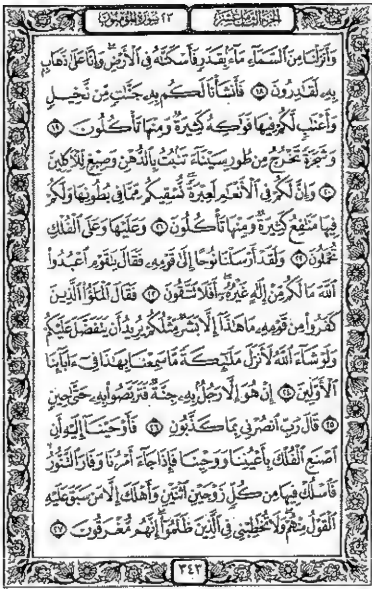 الجزء الثامن عشر
٢٣ سورة المؤمنون
وَأَنزَلْنَا مِنَ السَّمَاءِ مَاءً بِقَدَرٍ فَأَسْكَنَّاهُ فِي الْأَرْضِ ۖ وَإِنَّا عَلَىٰ ذَهَابٍ
بِهِ لَقَادِرُونَ ١٨ فَأَنشَأْنَا لَكُم بِهِ جَنَّاتٍ مِّن نَّخِيلٍ
وَأَعْنَابٍ لَّكُمْ فِيهَا فَوَاكِهُ كَثِيرَةٌ وَمِنْهَا تَأْكُلُونَ ١٩
وَشَجَرَةً تَخْرُجُ مِن طُورِ سَيْنَاءَ تَنبُتُ بِالدُّهْنِ وَصِبْغٍ لِّلْآكِلِينَ
٢٠ وَإِنَّ لَكُمْ فِي الْأَنْعَامِ لَعِبْرَةً ۖ نُّسْقِيكُم مِّمَّا فِي بُطُونِهَا وَلَكُمْ
فِيهَا مَنَافِعُ كَثِيرَةٌ وَمِنْهَا تَأْكُلُونَ ٢١ وَعَلَيْهَا وَعَلَى الْفُلْكِ
تُحْمَلُونَ ٢٢ وَلَقَدْ أَرْسَلْنَا نُوحًا إِلَىٰ قَوْمِهِ فَقَالَ يَا قَوْمِ اعْبُدُوا
اللَّهَ مَا لَكُم مِّنْ إِلَٰهٍ غَيْرُهُ ۖ أَفَلَا تَتَّقُونَ ٢٣ فَقَالَ الْمَلَأُ الَّذِينَ
كَفَرُوا مِن قَوْمِهِ مَا هَٰذَا إِلَّا بَشَرٌ مِّثْلُكُمْ يُرِيدُ أَن يَتَفَضَّلَ عَلَيْكُمْ
وَلَوْ شَاءَ اللَّهُ لَأَنزَلَ مَلَائِكَةً مَّا سَمِعْنَا بِهَٰذَا فِي آبَائِنَا
الْأَوَّلِينَ ٢٤ إِنْ هُوَ إِلَّا رَجُلٌ بِهِ جِنَّةٌ فَتَرَبَّصُوا بِهِ حَتَّىٰ حِينٍ
٢٥ قَالَ رَبِّ انصُرْنِي بِمَا كَذَّبُونِ ٢٦ فَأَوْحَيْنَا إِلَيْهِ أَنِ
اصْنَعِ الْفُلْكَ بِأَعْيُنِنَا وَوَحْيِنَا فَإِذَا جَاءَ أَمْرُنَا وَفَارَ التَّنُّورُ ۙ
فَاسْلُكْ فِيهَا مِن كُلٍّ زَوْجَيْنِ اثْنَيْنِ وَأَهْلَكَ إِلَّا مَن سَبَقَ عَلَيْهِ
الْقَوْلُ مِنْهُمْ ۖ وَلَا تُخَاطِبْنِي فِي الَّذِينَ ظَلَمُوا ۖ إِنَّهُم مُّغْرَقُونَ ٢٧
٣٤٣